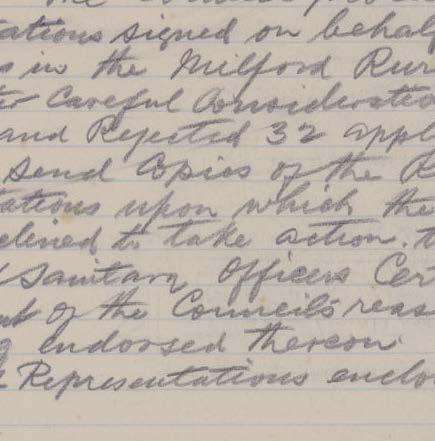 the Council
tations signed on behalf
s in the Milford Rur
ter Careful Consideratio
and Rejected 32 appl
send Copies of the R
tations upon which the
clined to take action. t
Sanitary Officers Cert
of the Council's reas
g endorsed thereon.
Representations enclo